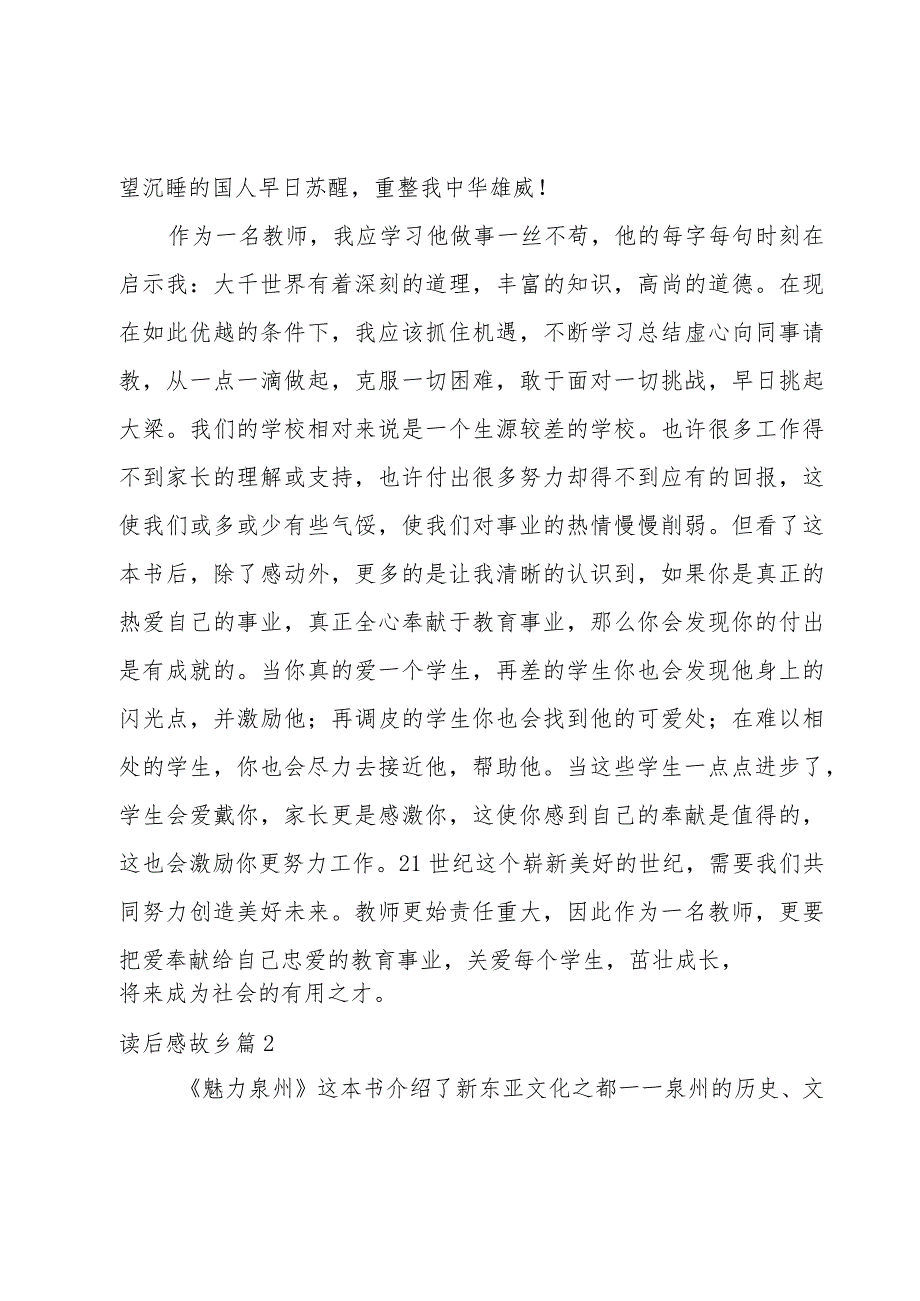 望沉睡的国人早日苏醒，重整我中华雄威！
作为一名教师，我应学习他做事一丝不苟，他的每字每句时刻在
启示我：大千世界有着深刻的道理，丰富的知识，高尚的道德。在现
在如此优越的条件下，我应该抓住机遇，不断学习总结虚心向同事请
教，从一点一滴做起，克服一切困难，敢于面对一切挑战，早日挑起
大梁。我们的学校相对来说是一个生源较差的学校。也许很多工作得
不到家长的理解或支持，也许付出很多努力却得不到应有的回报，这
使我们或多或少有些气馁，使我们对事业的热情慢慢削弱。但看了这
本书后，除了感动外，更多的是让我清晰的认识到，如果你是真正的
热爱自己的事业，真正全心奉献于教育事业，那么你会发现你的付出
是有成就的。当你真的爱一个学生，再差的学生你也会发现他身上的
闪光点，并激励他；再调皮的学生你也会找到他的可爱处；在难以相
处的学生，你也会尽力去接近他，帮助他。当这些学生一点点进步了，
学生会爱戴你，家长更是感激你，这使你感到自己的奉献是值得的，
这也会激励你更努力工作。21世纪这个崭新美好的世纪，需要我们共
同努力创造美好未来。教师更始责任重大，因此作为一名教师，更要
把爱奉献给自己忠爱的教育事业，关爱每个学生，茁壮成长，
将来成为社会的有用之才。
读后感故乡篇2
《魅力泉州》这本书介绍了新东亚文化之都一一泉州的历史、文